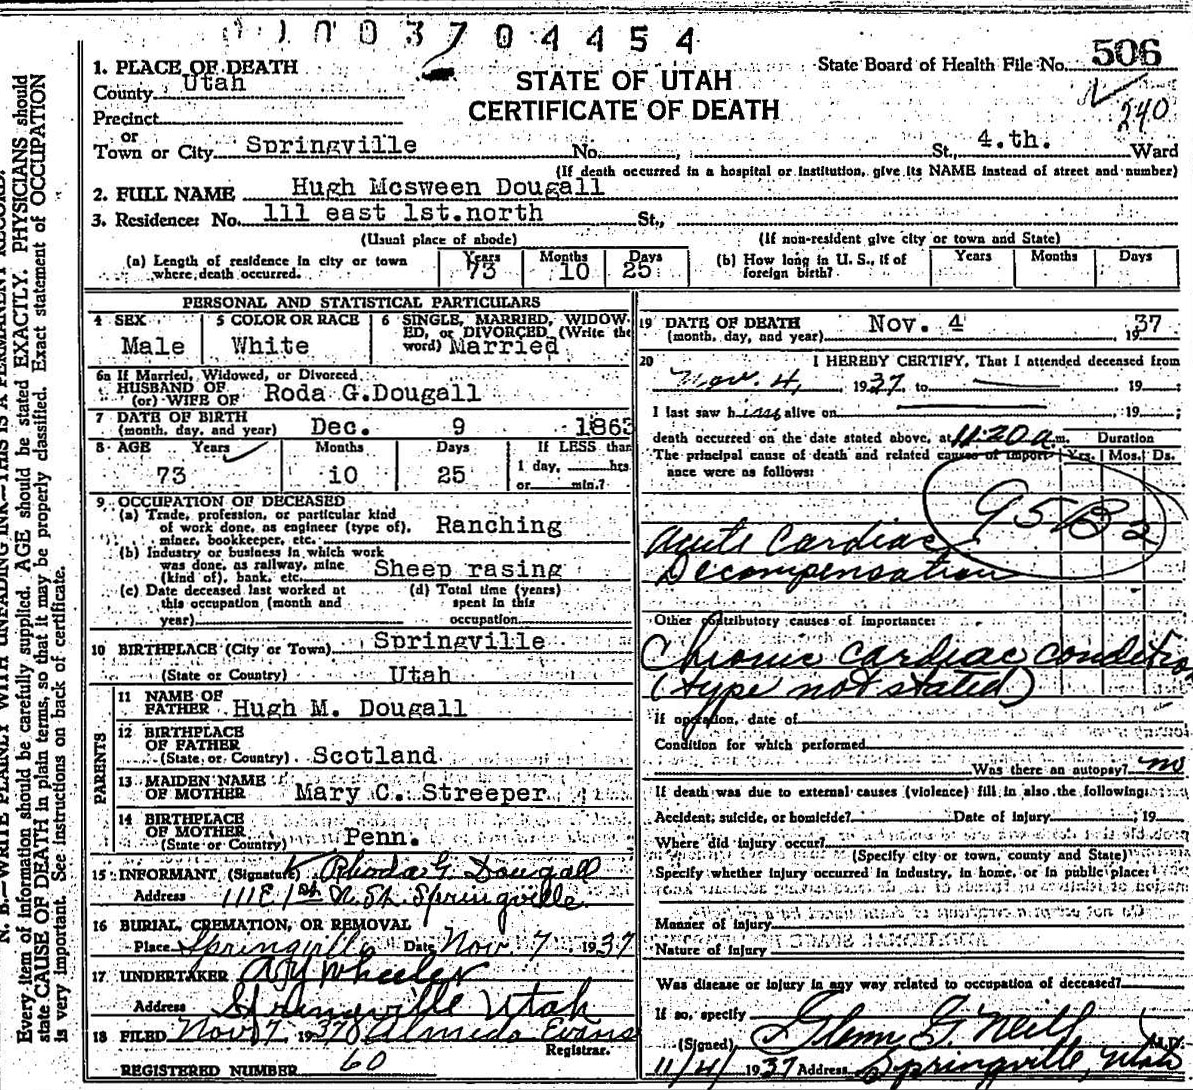 003704454
1. PLACE OF DEATH
County Utah
Precinct
or
Town or City Springville No. , St., 4.th. Ward
STATE OF UTAH
CERTIFICATE OF DEATH
State Board of Health File No. 506
240
(If death occurred in a hospital or institution, give its NAME instead of street and number)
2. FULL NAME Hugh Mcsween Dougall
3. Residence: No. 111 east 1st.north St.,
(Usual place of abode) (If non-resident give city or town and State)
(a) Length of residence in city or town where death occurred. Years 73 Months 10 Days 25
(b) How long in U. S., if of foreign birth? Years Months Days
PERSONAL AND STATISTICAL PARTICULARS
4 SEX Male
5 COLOR OR RACE White
6 SINGLE, MARRIED, WIDOWED, or DIVORCED (Write the word) Married
6a If Married, Widowed, or Divorced
HUSBAND OF
(or) WIFE OF Roda G.Dougall
7 DATE OF BIRTH
(month, day, and year) Dec. 9 1863
8 AGE Years 73 Months 10 Days 25 If LESS than 1 day, hrs or min.?
9 OCCUPATION OF DECEASED
(a) Trade, profession, or particular kind of work done, as engineer (type of), miner, bookkeeper, etc. Ranching
(b) Industry or business in which work was done, as railway, mine (kind of), bank, etc. Sheep rasing
(c) Date deceased last worked at this occupation (month and year)
(d) Total time (years) spent in this occupation
10 BIRTHPLACE (City or Town) Springville
(State or Country) Utah
PARENTS
11 NAME OF FATHER Hugh M. Dougall
12 BIRTHPLACE OF FATHER
(State or Country) Scotland
13 MAIDEN NAME OF MOTHER Mary C. Streeper
14 BIRTHPLACE OF MOTHER
(State or Country) Penn.
15 INFORMANT (Signature) Rhoda G. Dougall
Address 111 E 1st N. St. Springville
16 BURIAL, CREMATION, OR REMOVAL
Place Springville Date Nov. 7 1937
17 UNDERTAKER A Y Wheeler
Address Springville Utah
18 FILED Nov 7 1937 Almeda Evans
Registrar.
REGISTERED NUMBER 60
19 DATE OF DEATH
(month, day, and year) Nov. 4 1937
20 I HEREBY CERTIFY, That I attended deceased from
Nov. 4, 1937 to 19 ;
I last saw him alive on , 19 ;
death occurred on the date stated above, at 11:20 a.m. Duration
The principal cause of death and related causes of importance were as follows: Yrs. Mos. Ds.
95B2
Acute Cardiac
Decompensation
Other contributory causes of importance:
Chronic cardiac condition
(type not stated)
If operation, date of
Condition for which performed
Was there an autopsy? no
If death was due to external causes (violence) fill in also the following:
Accident, suicide, or homicide? Date of injury ; 19
Where did injury occur?
(Specify city or town, county and State)
Specify whether injury occurred in industry, in home, or in public place:
Manner of injury
Nature of injury
Was disease or injury in any way related to occupation of deceased?
If so, specify
(Signed) Glenn G. Neill M.D.
11/4/1937 Address Springville, Utah
N. B.—WRITE PLAINLY WITH UNFADING INK—THIS IS A PERMANENT RECORD.
Every item of information should be carefully supplied. AGE should be stated EXACTLY. PHYSICIANS should
state CAUSE OF DEATH in plain terms, so that it may be properly classified. Exact statement of OCCUPATION
is very important. See instructions on back of certificate.